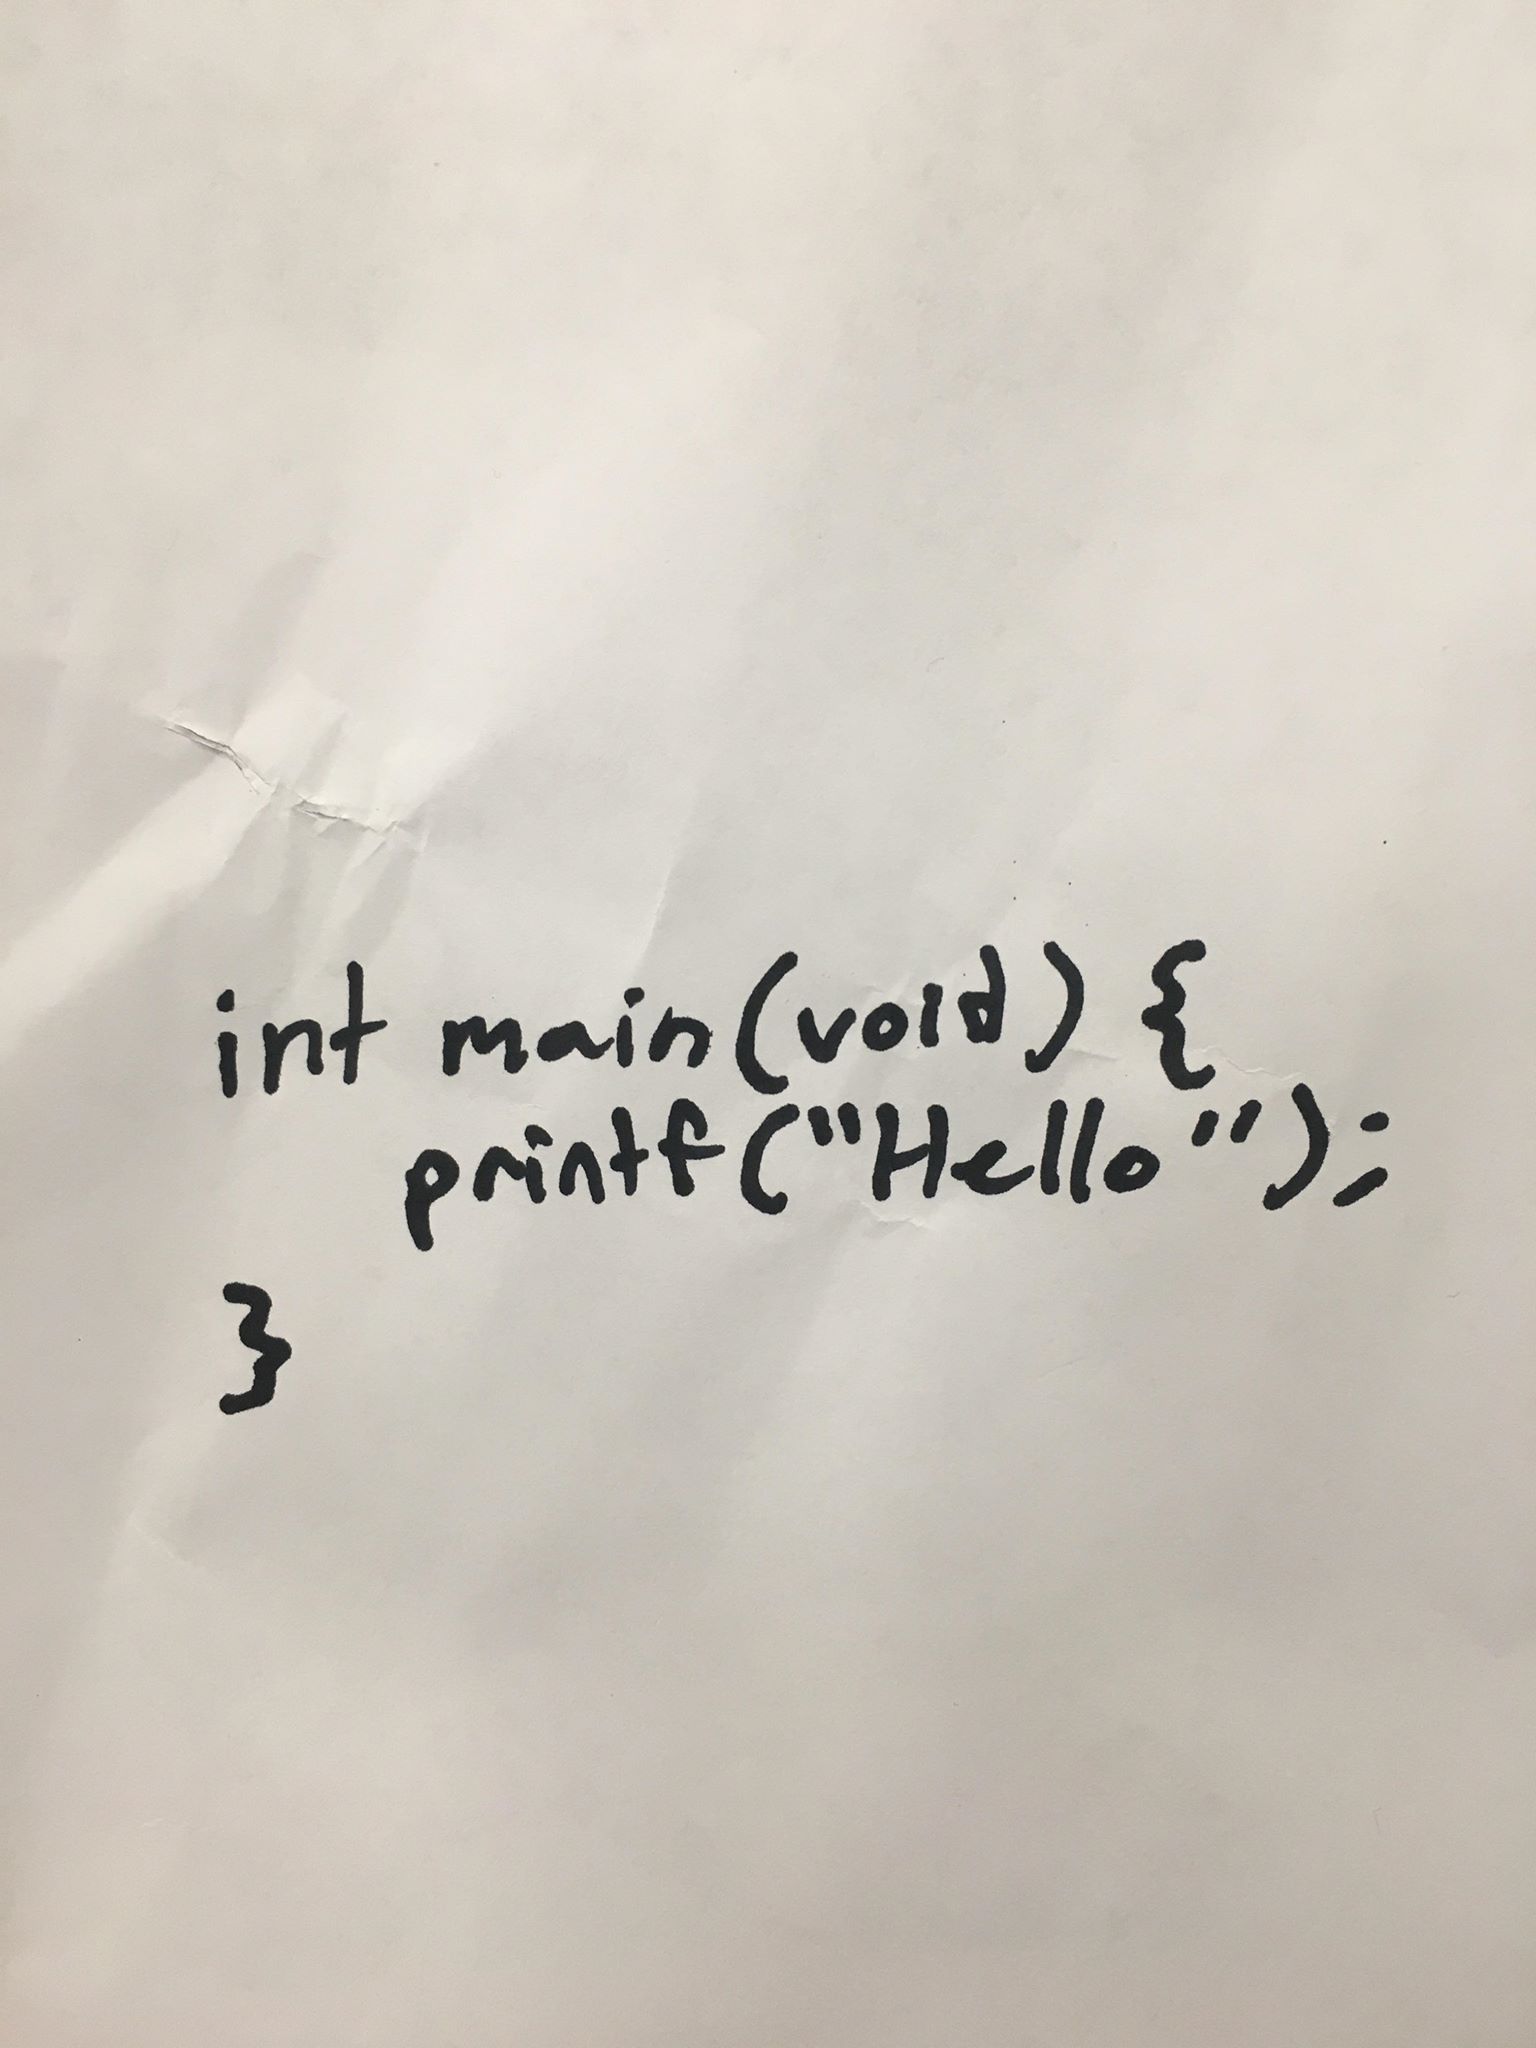 int main(void) {
printf("Hello");
}